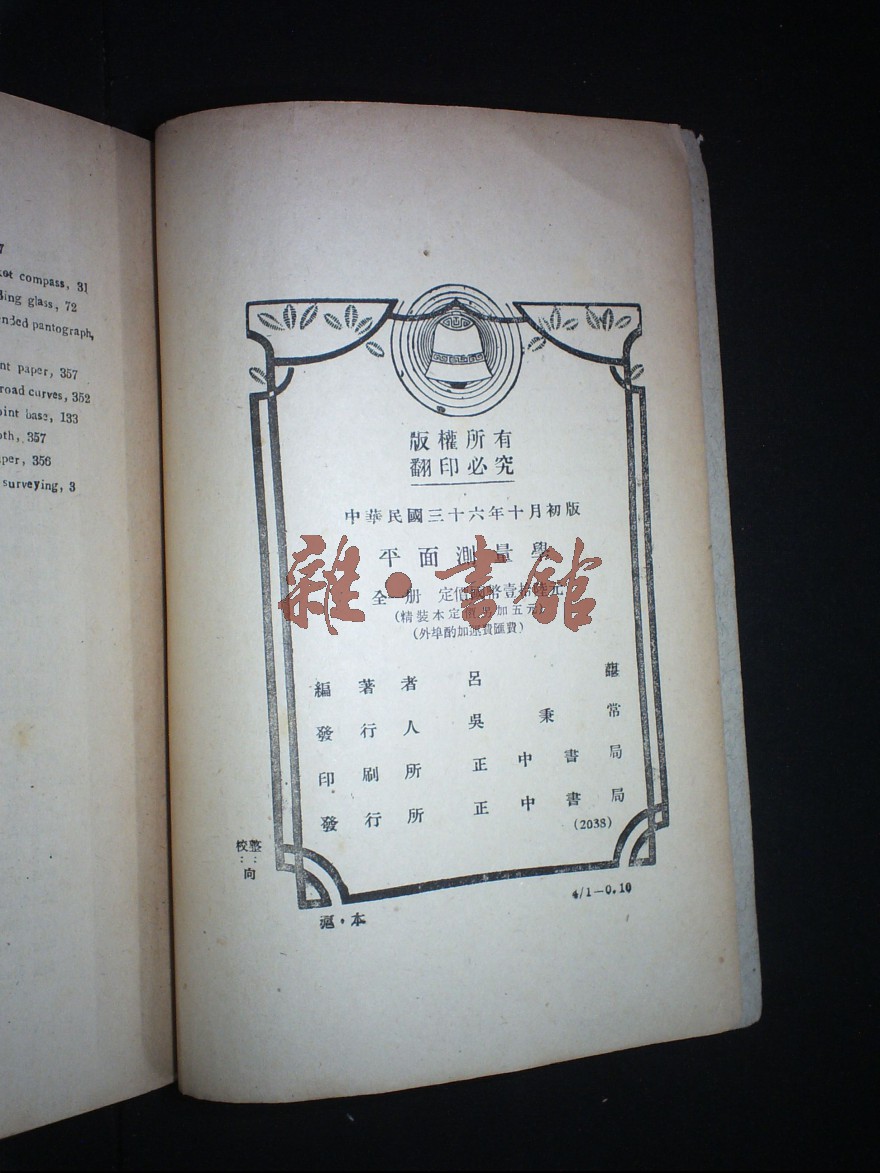 7
ket compass, 31
glass, 72
ended pantograph,
paper, 357
road curves, 352
oint base, 133
oth, 357
per, 356
surveying, 3
版權所有
翻印必究
中華民國三十六年十月初版
平面測量學
全一册 定價國幣壹拾陸元
(精裝本定價另加五元)
(外埠酌加運費匯費)
雜·書館
編著者 呂
發行人 吳秉常
印刷所 正中書局
發行所 正中書局
(2038)
校整
：：
向
滬·本
4/1—0.10